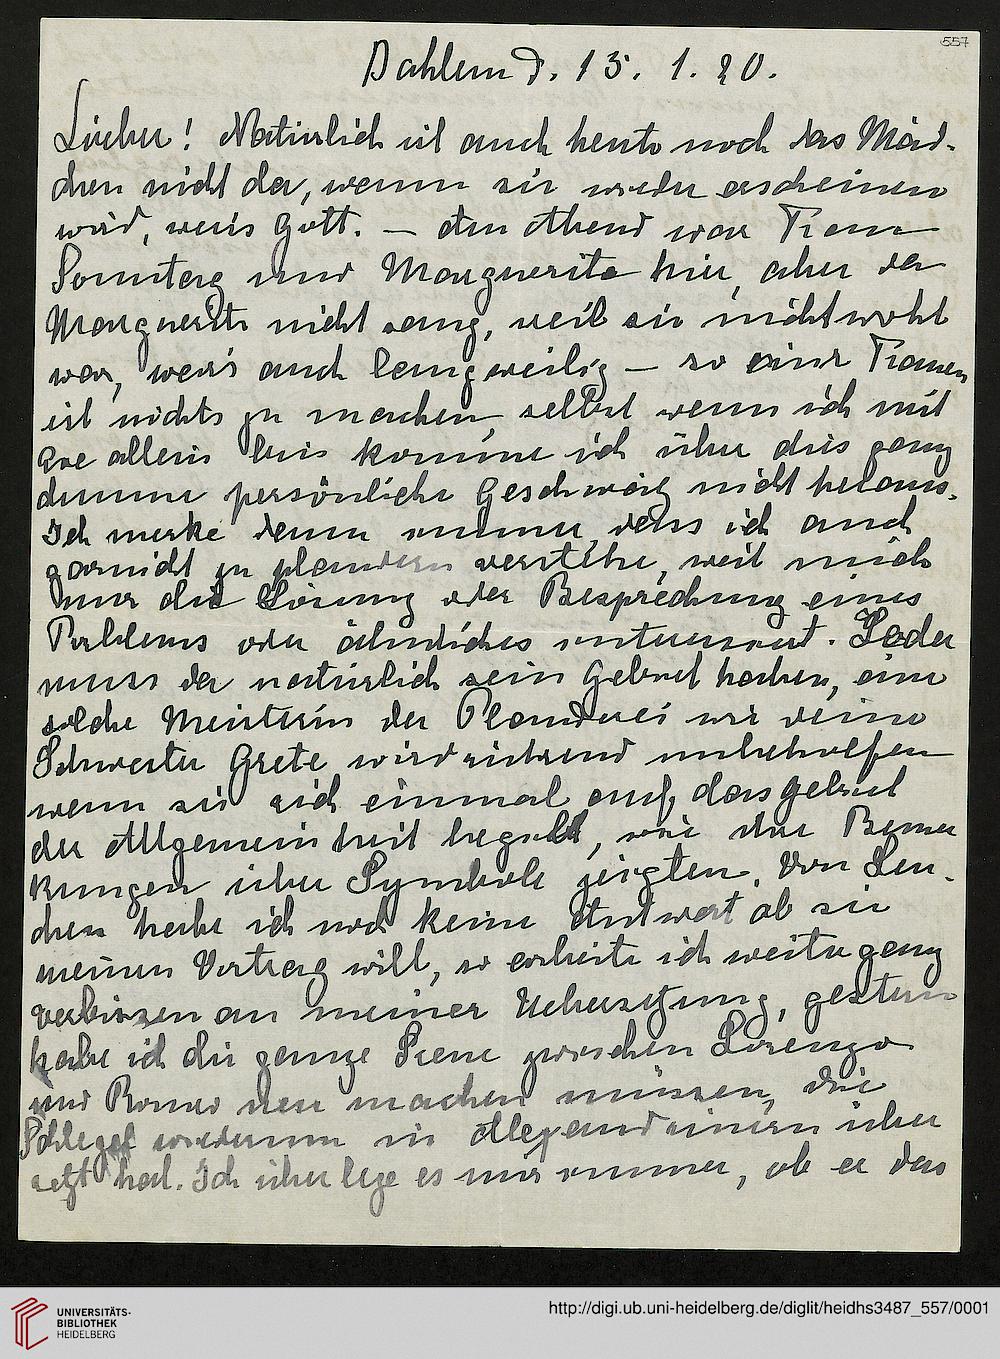 557
Dahlem d. 15. 1. 20.
Lieber! Natürlich ist auch heute noch das Mäd-
chen nicht da, wenn sie wieder erscheinen
wird, weis Gott. — den Abend war Frau
Sonntag und Marguerite hier, aber da
Marguerite nicht sang, weil sie nicht wohl
war, war's auch langweilig — so eine Frauen
ist nichts zu machen, selbst wenn ich mit
allein bin komme ich über dies ganz
dumme persönliche Geschwätz nicht heraus.
Ich merke dann immer, dass ich auch
garnicht zu plaudern verstehe, weil mich
nur die Lösung oder Besprechung eines
Problems oder ähnliches interessiert. Jeder
muss da natürlich sein Gebiet haben, eine
solche Meisterin der Plauderei wie deine
Schwester Grete wird rührend unbeholfen
wenn sie sich einmal auf das Gebiet
der Allgemeinheit begibt, wie ihre Bemer
kungen über Symbole zeigten. Von Len-
chen habe ich noch keine Antwort ob sie
meinen Vortrag will, so arbeite ich weiter ganz
verbissen an meiner Uebersetzung, gestern
habe ich die ganze Scene zwischen Lorenzo
und Romeo neu machen müssen, die
Schlegel wiederum in Alexandrinern über
setzt hat. Ich überlege es mir immer, ob er das
UNIVERSITÄTS-
BIBLIOTHEK
HEIDELBERG
http://digi.ub.uni-heidelberg.de/diglit/heidhs3487_557/0001